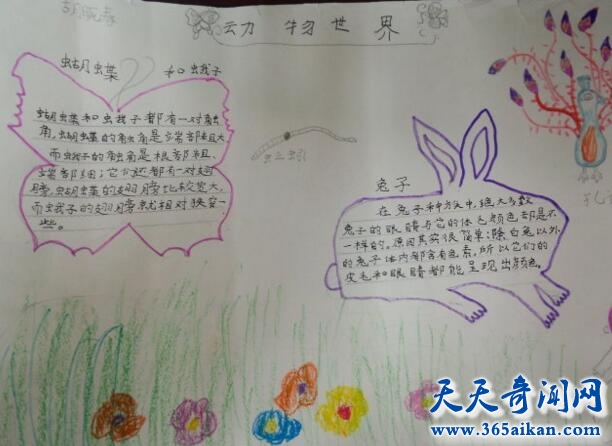 动物世界
蝴蝶 和蛾子
蝴蝶和蛾子都有一对触
角,蝴蝶的触角是端部粗大
而蛾子的触角是根部粗、
端部细;它们还都有一对翅
膀,蝴蝶的翅膀比较宽大,
而蛾子的翅膀就相对狭窄一
些。
兔子
在兔子种族中,绝大多数
兔子的眼睛与它的体毛颜色都是不
一样的。原因其实很简单:除白兔以外
的兔子体内都含有色素,所以它们的
皮毛和眼睛都能呈现出颜色。
孔
天天奇闻网
www.365aikan.com